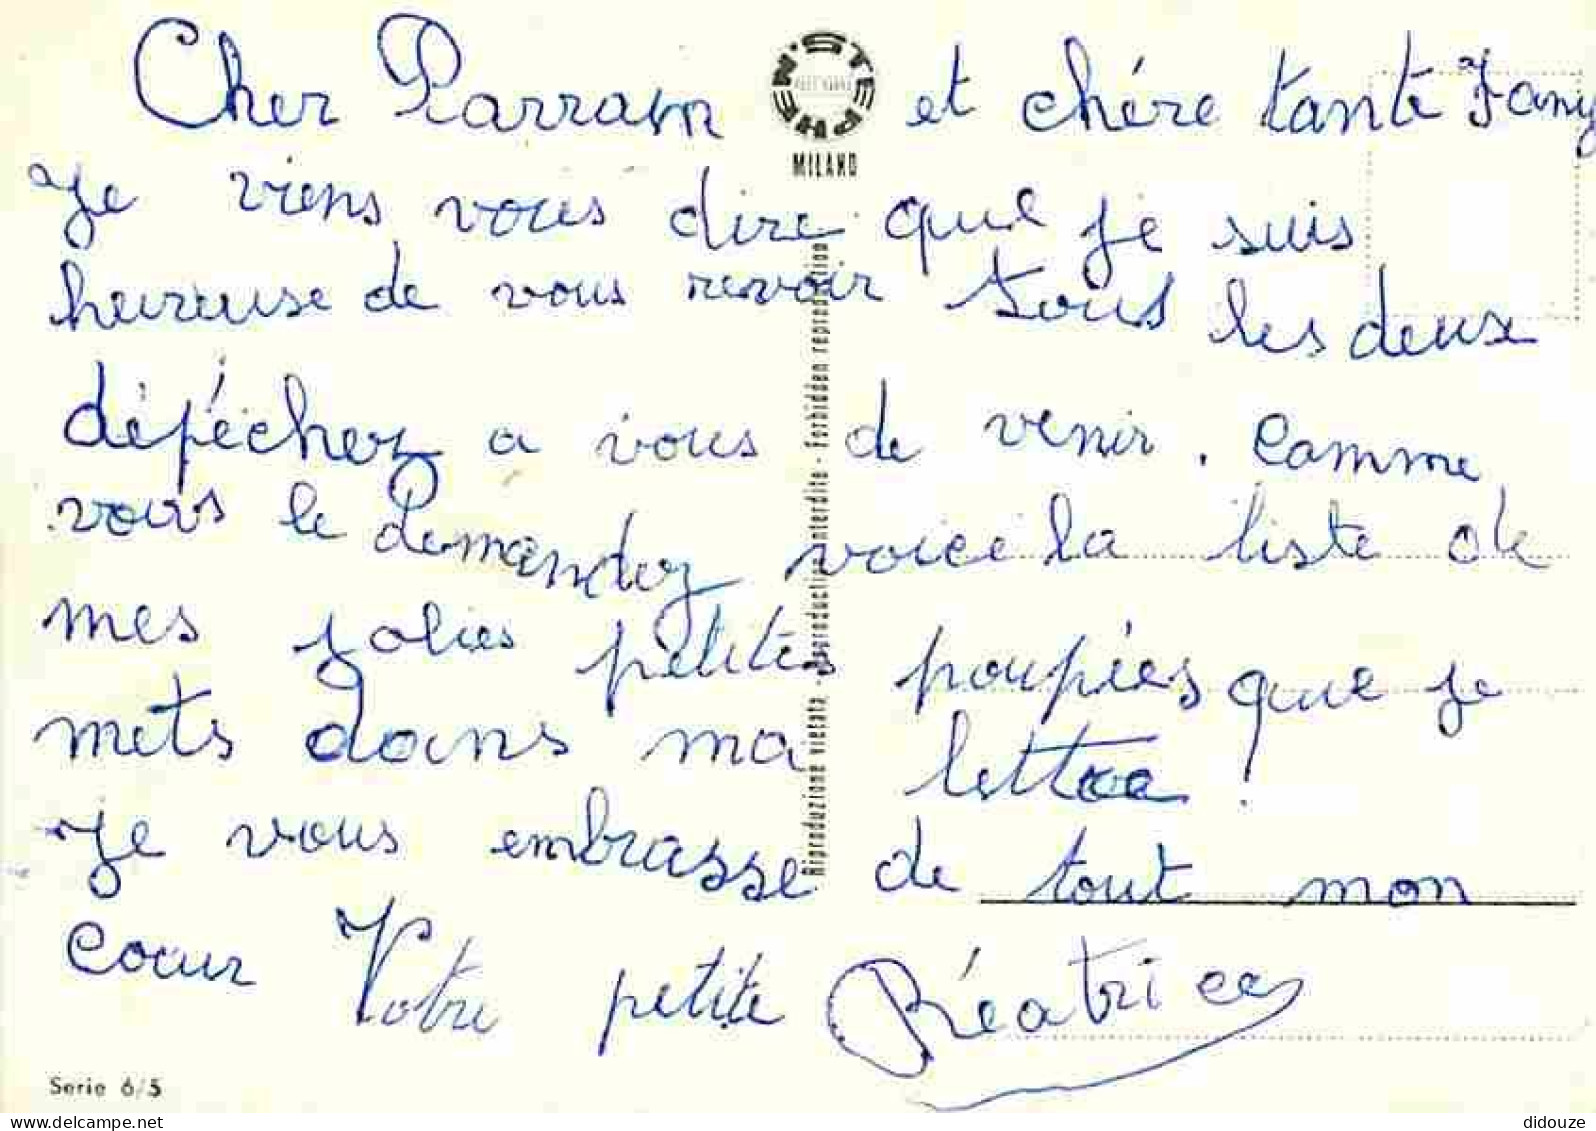 Cher Parrain et chére tante Fany
Je viens vous dire que je suis
heureuse de vous revoir tous les deux
dépéchez a vous de venir. Comme
vous le demandez voice la liste de
mes jolies petites poupées que je
mets dans ma lettre!
Je vous embrasse de tout mon
coeur Votre petite Béatrice
STEPHEN'S
MILANO
Riproduzione vietata - Reproduction interdite - Forbidden reproduction
Serie 6/5
https://www.delcampe.net
didouze